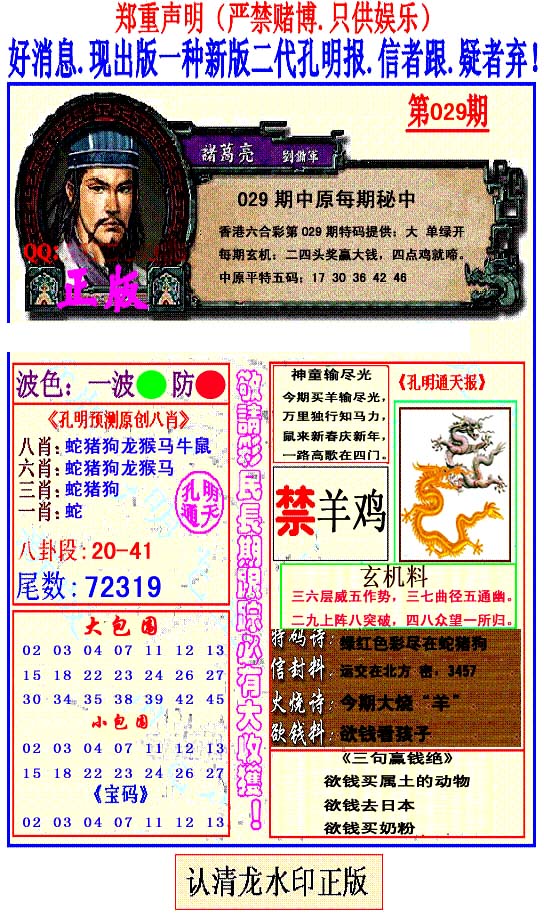 郑重声明（严禁赌博.只供娱乐）
好消息.现出版一种新版二代孔明报.信者跟.疑者弃!
第029期
諸葛亮 劉備軍
029 期中原每期秘中
香港六合彩第 029 期特码提供：大 单绿开
每期玄机：二四头奖赢大钱，四点鸡就啼。
中原平特五码：17 30 36 42 46
QQ:
正版
波色：一波 防
《孔明预测原创八肖》
八肖:蛇猪狗龙猴马牛鼠
六肖:蛇猪狗龙猴马
三肖:蛇猪狗
一肖:蛇
孔明
通天
八卦段:20-41
尾数:72319
大包围
02 03 04 07 11 12 13
15 18 22 23 24 26 27
30 34 35 38 39 42 45
小包围
02 03 04 07 11 12 13
15 18 22 23 24 26 27
《宝码》
02 03 04 07 11 12 13
敬請彩民長期跟踪必有大收獲！
神童输尽光
今期买羊输尽光，
万里独行知马力，
鼠来新春庆新年，
一路高歌在四门。
《孔明通天报》
禁羊鸡
玄机料
三六层威五作势，三七曲径五通幽。
二九上阵八突破，四八众望一所归。
特码诗：绿红色彩尽在蛇猪狗
信封料：运交在北方 密，3457
火烧诗：今期大烧“羊”
欲钱料：欲钱看孩子
《三句赢钱绝》
欲钱买属土的动物
欲钱去日本
欲钱买奶粉
认清龙水印正版